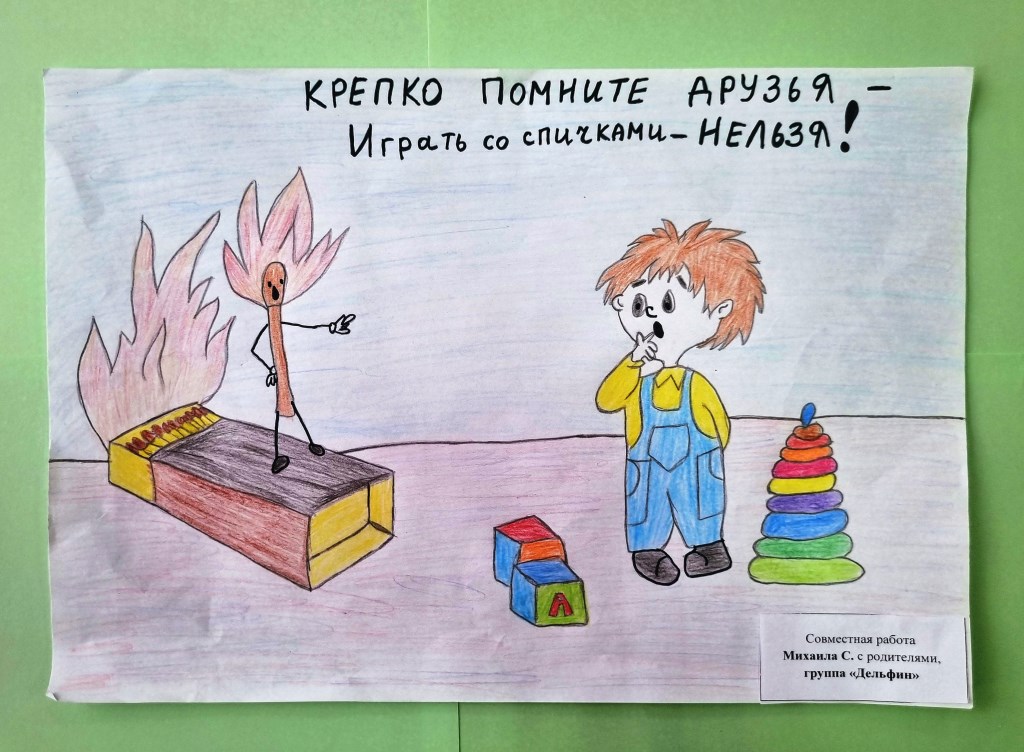 КРЕПКО ПОМНИТЕ ДРУЗЬЯ, –
Играть со спичками – НЕЛЬЗЯ!
Л
Совместная работа
Михаила С. с родителями,
группа «Дельфин»